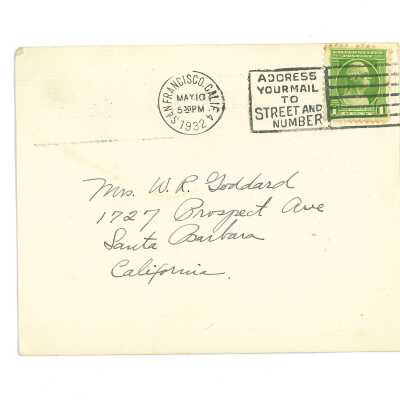 SAN FRANCISCO, CALIF. 4
MAY 10
5-PM
1932
ADDRESS
YOUR MAIL
TO
STREET AND
NUMBER
1
1
Mrs. W. R. Goddard
1727 Prospect Ave
Santa Barbara
California.